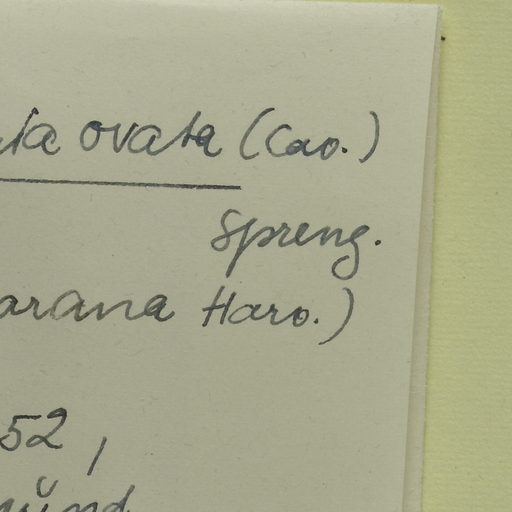 ia ovata (Cav.)
Spreng.
arana Haw.)
52,
münd